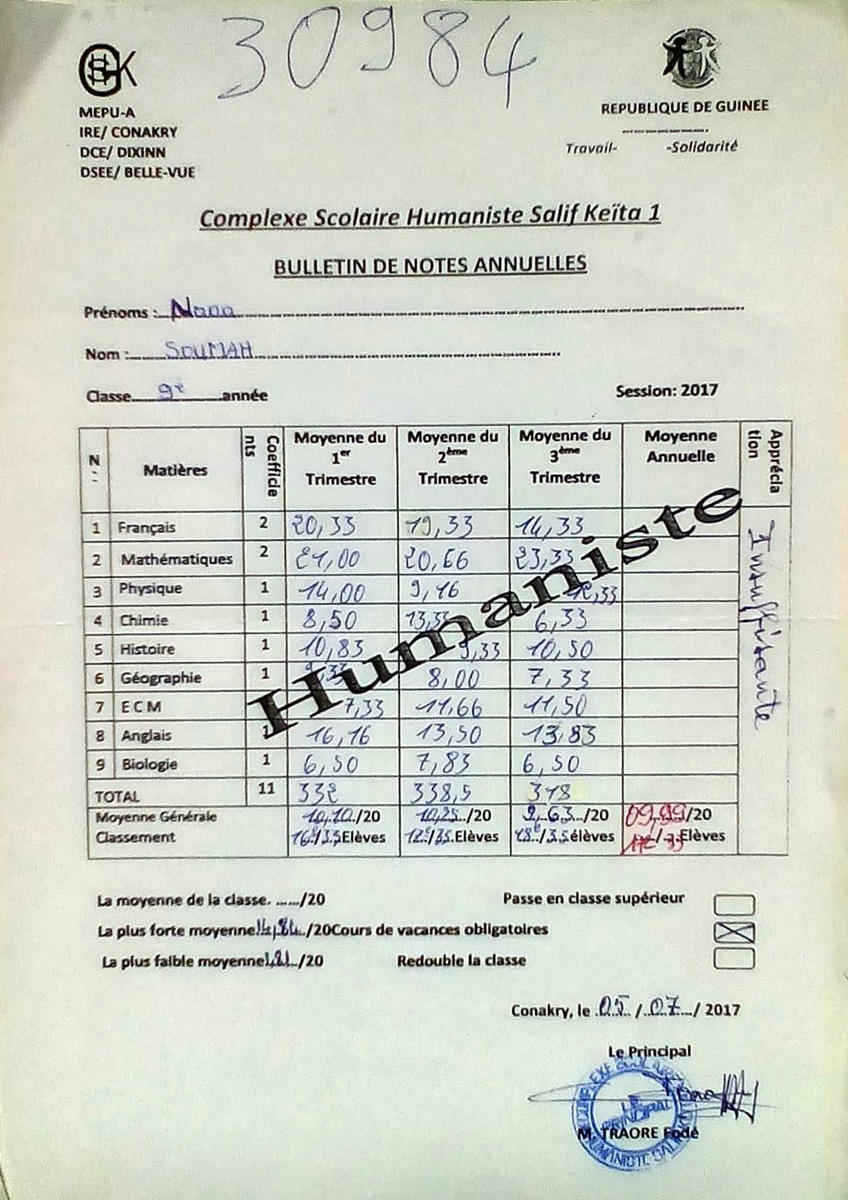 30984
GHSK
MEPU-A
IRE/ CONAKRY
DCE/ DIXINN
DSEE/ BELLE-VUE
REPUBLIQUE DE GUINEE
Travail- -Solidarité
Complexe Scolaire Humaniste Salif Keïta 1
BULLETIN DE NOTES ANNUELLES
Prénoms : Nana
Nom : SOUMAH
Classe 9e année Session: 2017
N : Matières Coefficients Moyenne du 1er Trimestre Moyenne du 2ème Trimestre Moyenne du 3ème Trimestre Moyenne Annuelle Appréciation
1 Français 2 20,33 19,33 14,33
2 Mathématiques 2 21,00 20,66 23,33
3 Physique 1 14,00 9,16 12,33
4 Chimie 1 8,50 13,33 6,33
5 Histoire 1 10,83 9,33 10,50
6 Géographie 1 9,33 8,00 7,33
7 E C M 7,33 11,66 11,50
8 Anglais 1 16,16 13,50 13,83
9 Biologie 1 6,50 7,83 6,50
Insuffisante
Humaniste
TOTAL 11 332 338,5 318
Moyenne Générale 10,10/20 10,25/20 9,63/20 09,99/20
Classement 16e/33Elèves 12e/35Elèves 18e/35élèves 17e/33Elèves
La moyenne de la classe. ....../20 Passe en classe supérieur
La plus forte moyenne 14,84/20 Cours de vacances obligatoires
La plus faible moyenne 1,81/20 Redouble la classe
Conakry, le 05/07/ 2017
Le Principal
LE PRINCIPAL
M. TRAORE Fodé